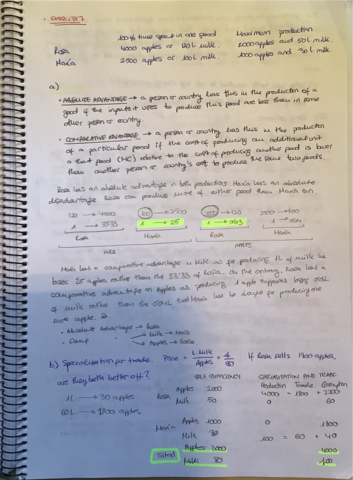 EXERCISE 7
100% time spent in one good Maximum production
Rosa 4000 apples or 120L milk 2000 apples and 50L milk
María 2500 apples or 100L milk 1000 apples and 30L milk
a)
• ABSOLUTE ADVANTAGE → a person or country has this in the production of a
good if the inputs it uses to produce this good are less than in some
other person or country.
• COMPARATIVE ADVANTAGE → a person or country has this in the production
of a particular good if the cost of producing an additional unit
of that good (MC) relative to the cost of producing another good is lower
than another person or country's cost to produce the same two goods.
Rosa has an absolute advantage in both productions. María has an absolute
disadvantage. Rosa can produce more of either good than María can
120 → 4000 100 → 2500 4000 → 120 2500 → 100
1 → 33'33 1 → 25 1 → 0'03 1 → 0'04
Rosa María Rosa María
MILK APPLES
María has a comparative advantage in Milk as for producing 1L of milk she
loses 25 apples rather than the 33'33 of Rosa. On the contrary, Rosa has a
comparative advantage in Apples as producing 1 apple supposes losing 0'03L
of milk rather than the 0'04L that María has to for producing one
more apple.
• Absolute Advantage → Rosa
• Comp. Milk → María
Apples → Rosa
b) Specialization for trade. Price = L Milk / Apples = If Rosa sells 1800 apples,
are they both better off?
SELF SUFFICIENCY SPECIALIZATION AND TRADE
Production Trade Consumption
1L → 30 apples Rosa Apples 2000 4000 - 1800 = 2200
60L → 1800 apples Milk 50 0 60
María Apples 1000 0 1800
Milk 30 100 = 60 + 40
Total Apples 3000 4000
Milk 80 100